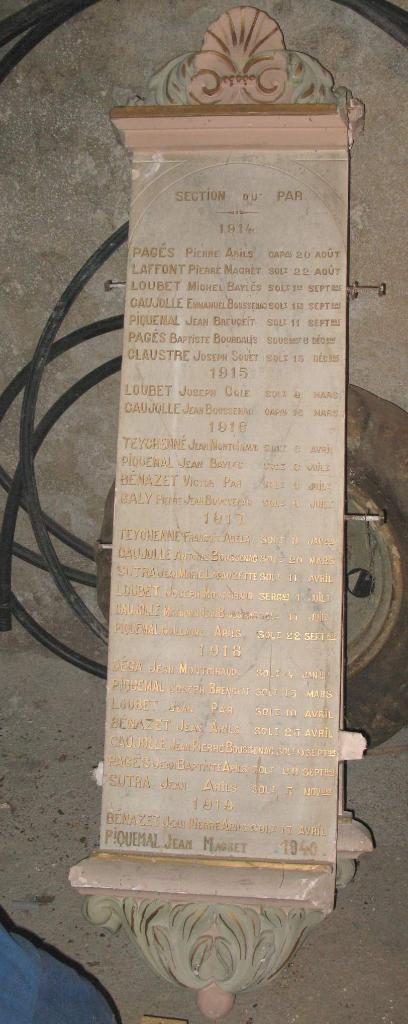 SECTION DU PAR
1914
PAGÉS PIERRE ARILS CAPAL 20 AOÛT
LAFFONT PIERRE MAGRÉT SOLT 22 AOÛT
LOUBET MICHEL BAYLÉS SOLT 1ER SEPTBRE
CAUJOLLE EMMANUEL BOUSSENAC SOLT SEPTBRE
PIQUEMAL JEAN SOLT 11 SEPTBRE
PAGÉS BAPTISTE 8 DÉCBRE
CLAUSTRE JOSEPH SOUET SOLT 15 DÉCBRE
1915
LOUBET JOSEPH SOLT MARS
CAUJOLLE JEAN BOUSSENAC CAPAL MARS
1916
TEYCHENNÉ JEAN SOLT AVRIL
PIQUEMAL JEAN BAYLÉS SOLT JUILT
BÉNAZET VICTOR PAR SOLT JUILT
BALY PIERRE JEAN SOLT JUILT
1917
TEYCHENNÉ FRANÇOIS ARILS SOLT JANVER
CAUJOLLE ANTOINE BOUSSENAC SOLT 20 MARS
SUTRA JEAN MARIE SOLT 11 AVRIL
LOUBET JOSEPH 1 JUILT
CAUJOLLE 11 JUILT
PIQUEMAL GUILLAUME ARILS SOLT 22 SEPTBRE
1918
DÉSA JEAN MONTGIRAUD SOLT 4 JANVER
PIQUEMAL JOSEPH SOLT 15 MARS
LOUBET JEAN PAR SOLT 10 AVRIL
BÉNAZET JEAN ARILS SOLT 25 AVRIL
CAUJOLLE JEAN PIERRE BOUSSENAC SOLT SEPTBRE
PAGÉS JEAN BAPTISTE ARILS SOLT SEPTBRE
SUTRA JEAN ARILS SOLT NOVBRE
1919
BÉNAZET JEAN PIERRE ARILS SOLT 17 AVRIL
PIQUEMAL JEAN MAGRET 1940